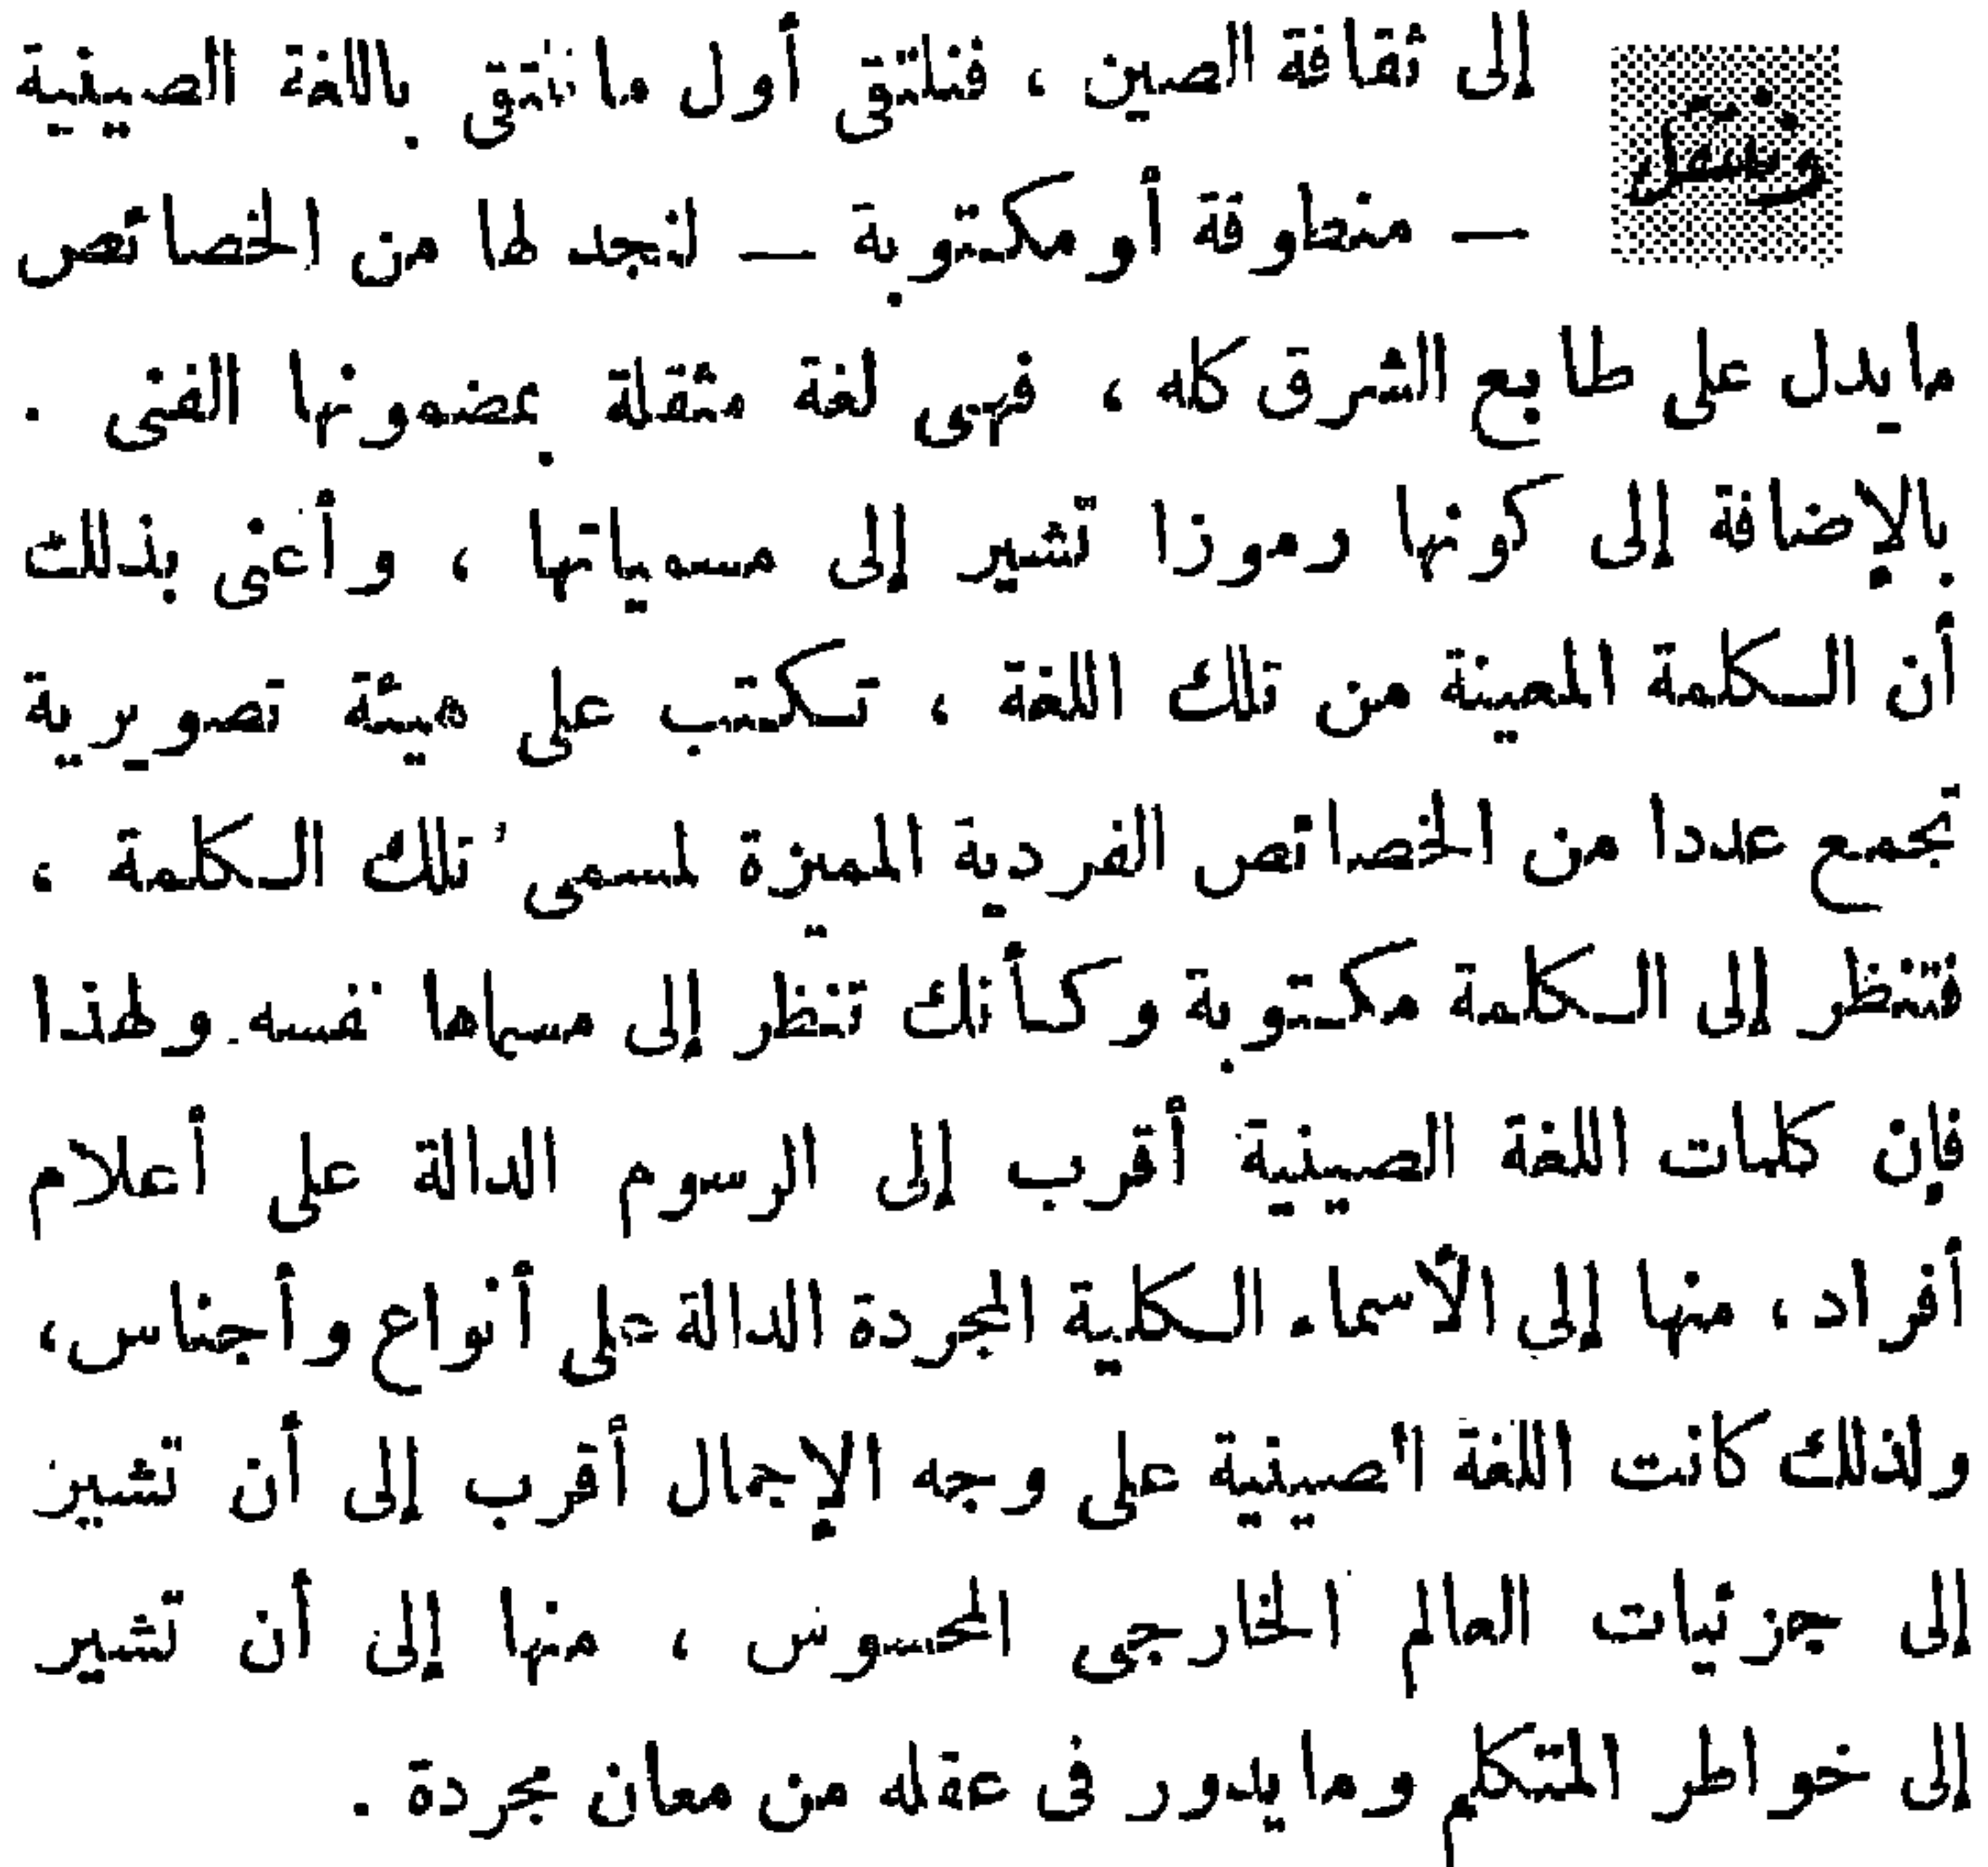 وننتقل إلى ثقافة الصين ، فنلتقى أول ما نلتقى باللغة الصينية
— منطوقة أو مكتوبة — لنجد لها من الخصائص
ما يدل على طابع الشرق كله ، فهى لغة مثقلة بمضمونها الفنى .
بالإضافة إلى كونها رموزا تشير إلى مسمياتها ، وأعنى بذلك
أن الكلمة المعينة من تلك اللغة ، تكتب على هيئة تصويرية
تجمع عددا من الخصائص الفردية المميزة لمسمى تلك الكلمة ،
فتنظر إلى الكلمة مكتوبة وكأنك تنظر إلى مسماها نفسه . ولهذا
فإن كلمات اللغة الصينية أقرب إلى الرسوم الدالة على أعلام
أفراد ، منها إلى الأسماء الكلية المجردة الدالة على أنواع وأجناس ،
ولذلك كانت اللغة الصينية على وجه الإجمال أقرب إلى أن تشير
إلى جزئيات العالم الخارجى المحسوس ، منها إلى أن تشير
إلى خواطر المتكلم وما يدور فى عقله من معان مجردة .